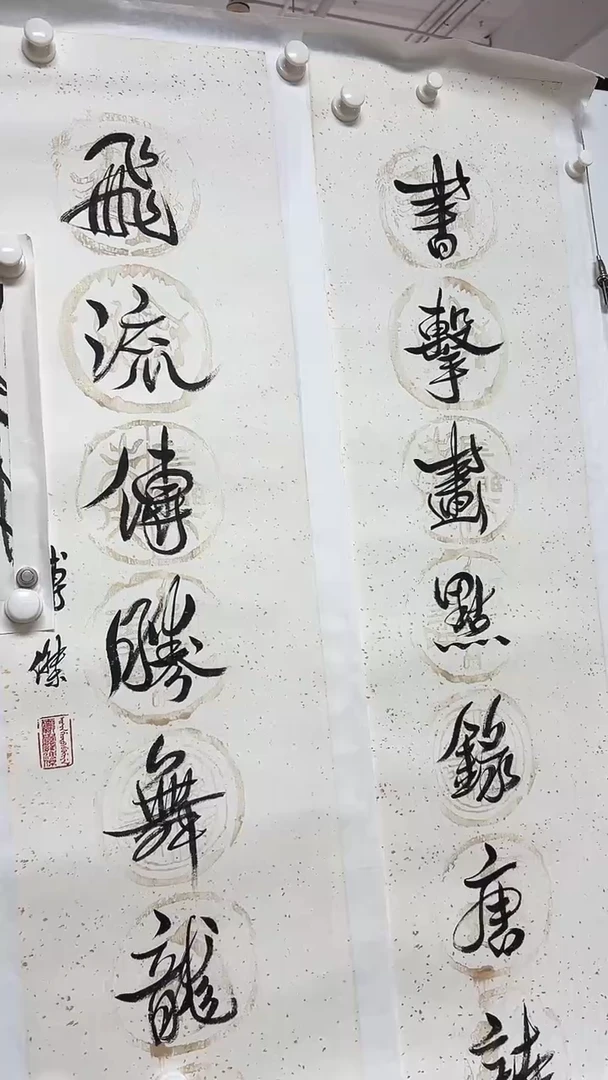 書擊畫點錄唐
飛流傳勝舞龍
傑